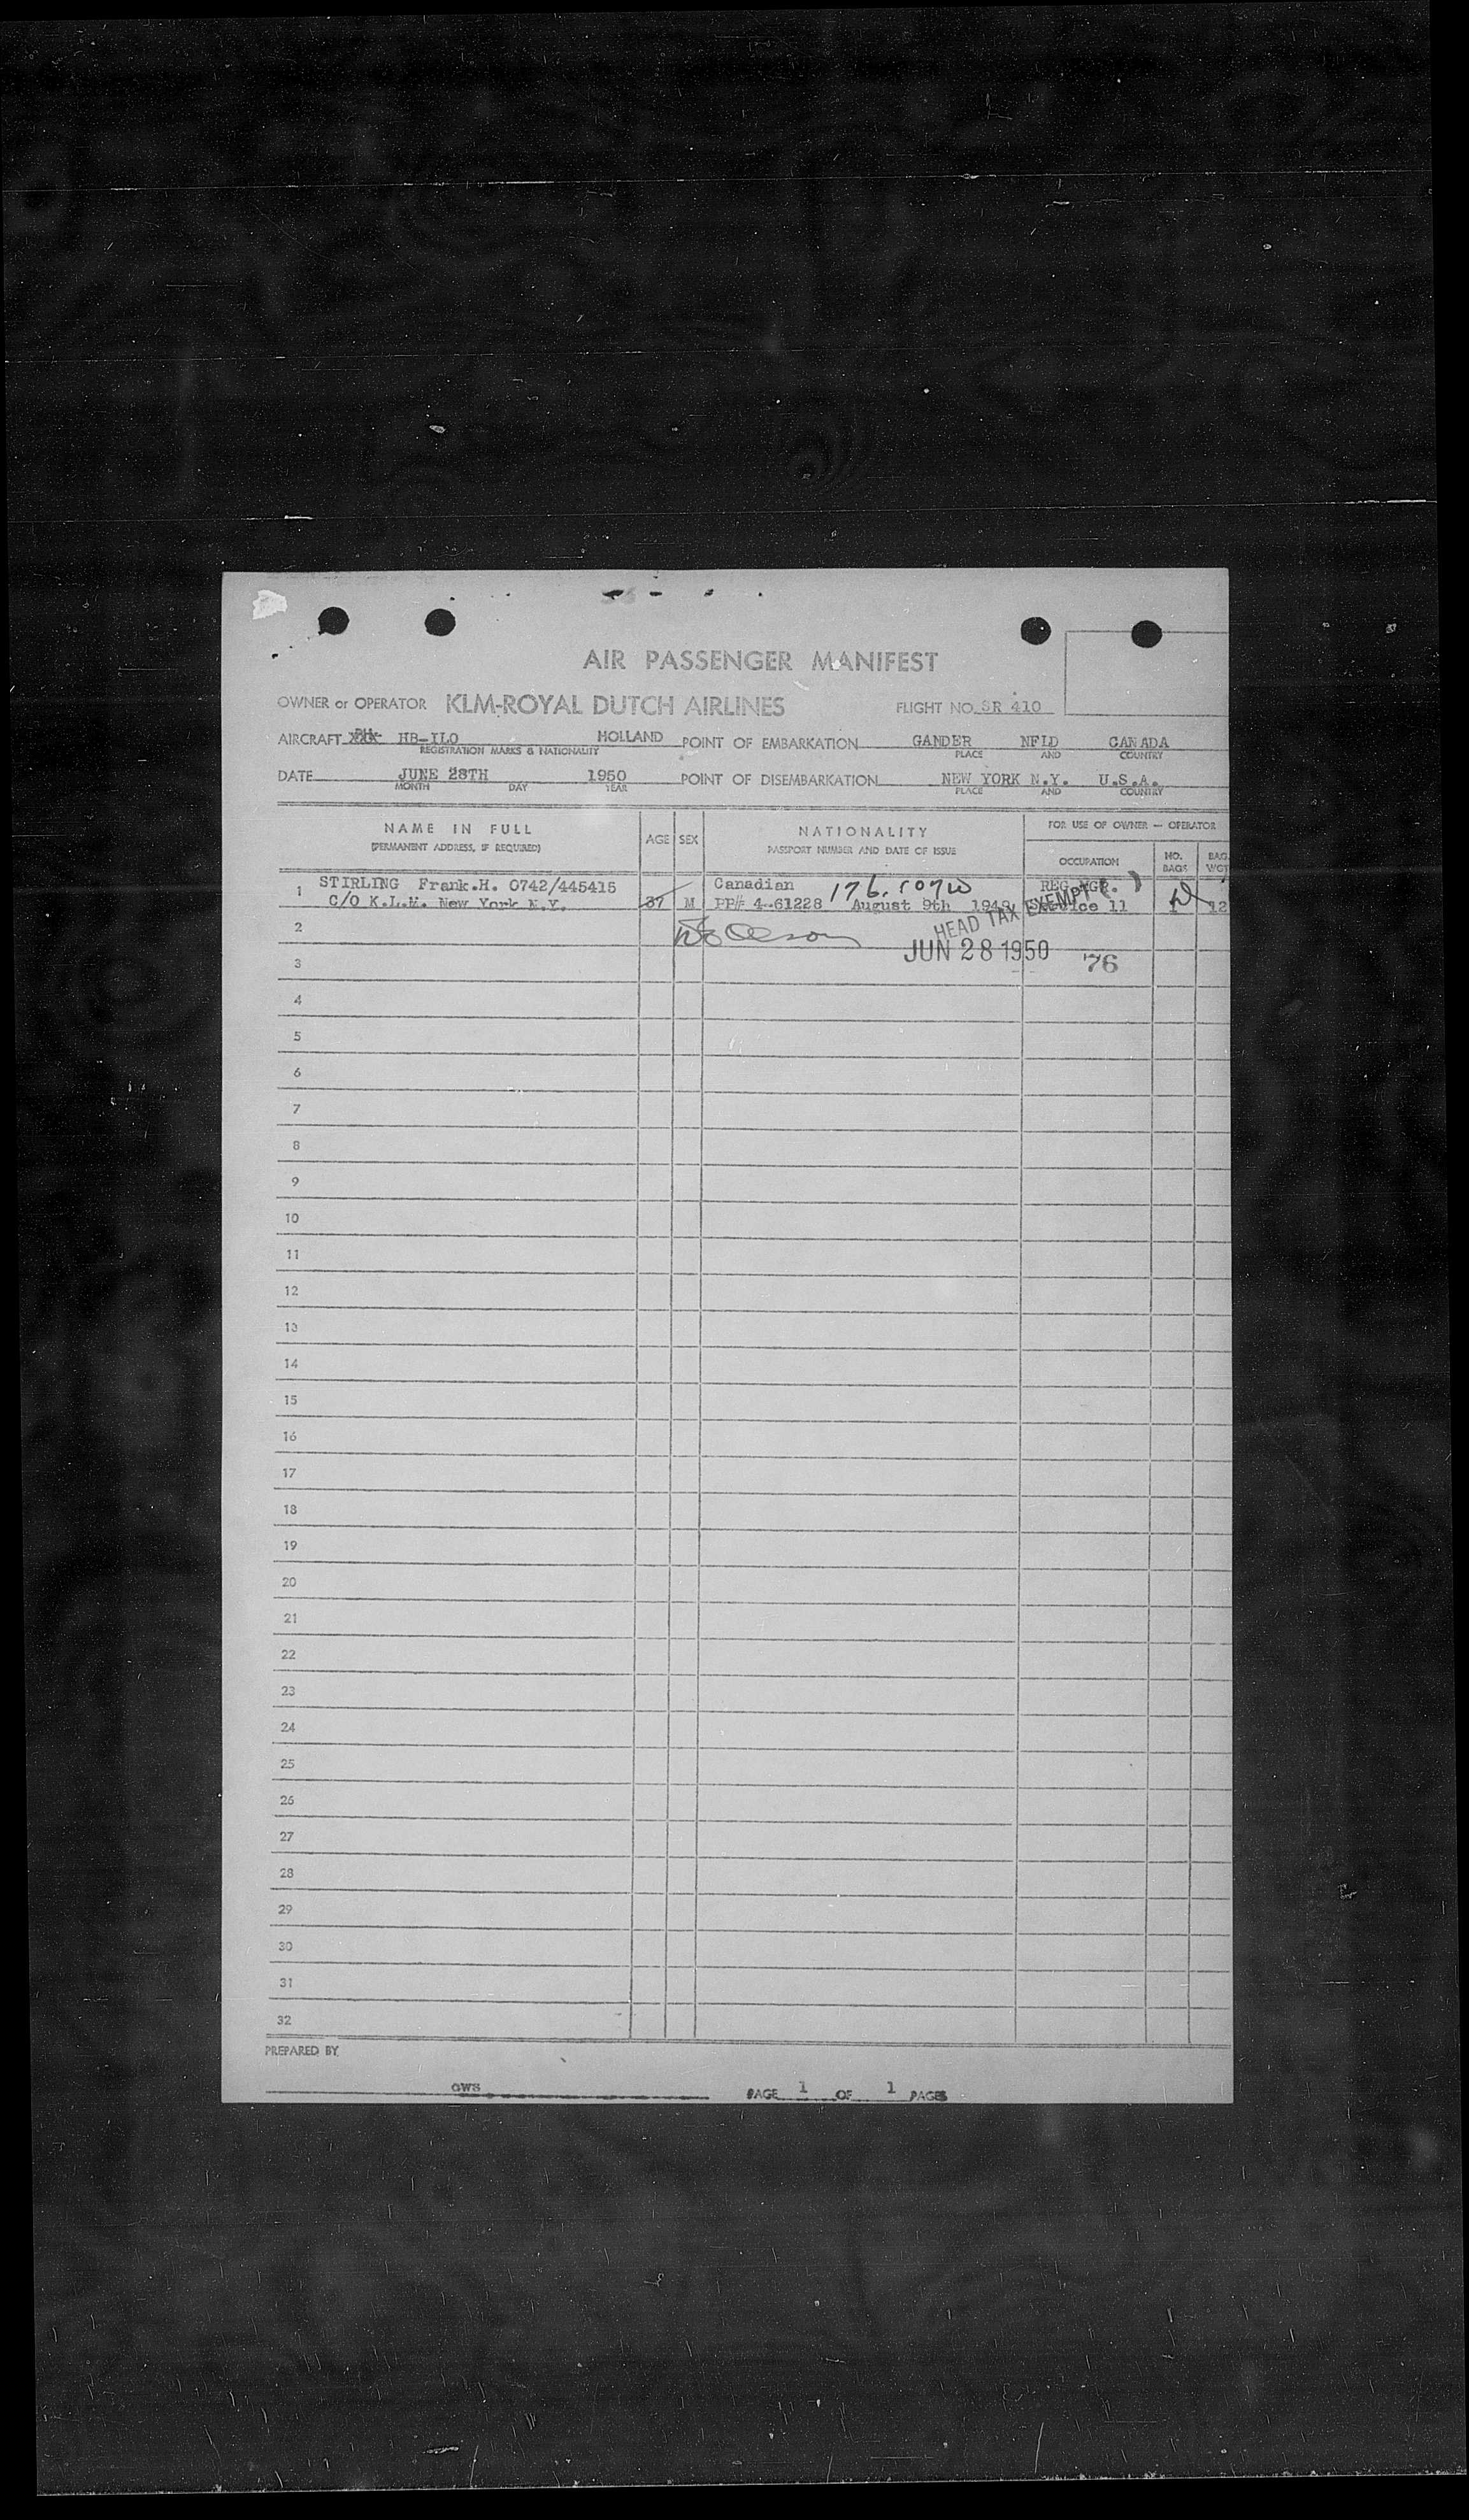 AIR PASSENGER MANIFEST
OWNER or OPERATOR KLM-ROYAL DUTCH AIRLINES FLIGHT NO. SR 410
AIRCRAFT HB-ILO HOLLAND POINT OF EMBARKATION GANDER NFLD CANADA
REGISTRATION MARKS & NATIONALITY PLACE AND COUNTRY
DATE JUNE 28TH 1950 POINT OF DISEMBARKATION NEW YORK N.Y. U.S.A.
MONTH DAY YEAR PLACE AND COUNTRY
NAME IN FULL
(PERMANENT ADDRESS, IF REQUIRED)
AGE SEX
NATIONALITY
PASSPORT NUMBER AND DATE OF ISSUE
FOR USE OF OWNER — OPERATOR
OCCUPATION
NO. BAGS
BAG. WGT
1 STIRLING Frank.H. 0742/445415 Canadian REG MGR.
C/O K.L.M. New York N.Y. 37 M PP# 4-61228 August 9th 1949 Service 11 1 12
HEAD TAX EXEMPT
2
JUN 28 1950 76
3
4
5
6
7
8
9
10
11
12
13
14
15
16
17
18
19
20
21
22
23
24
25
26
27
28
29
30
31
32
PREPARED BY
GWS PAGE 1 OF 1 PAGES